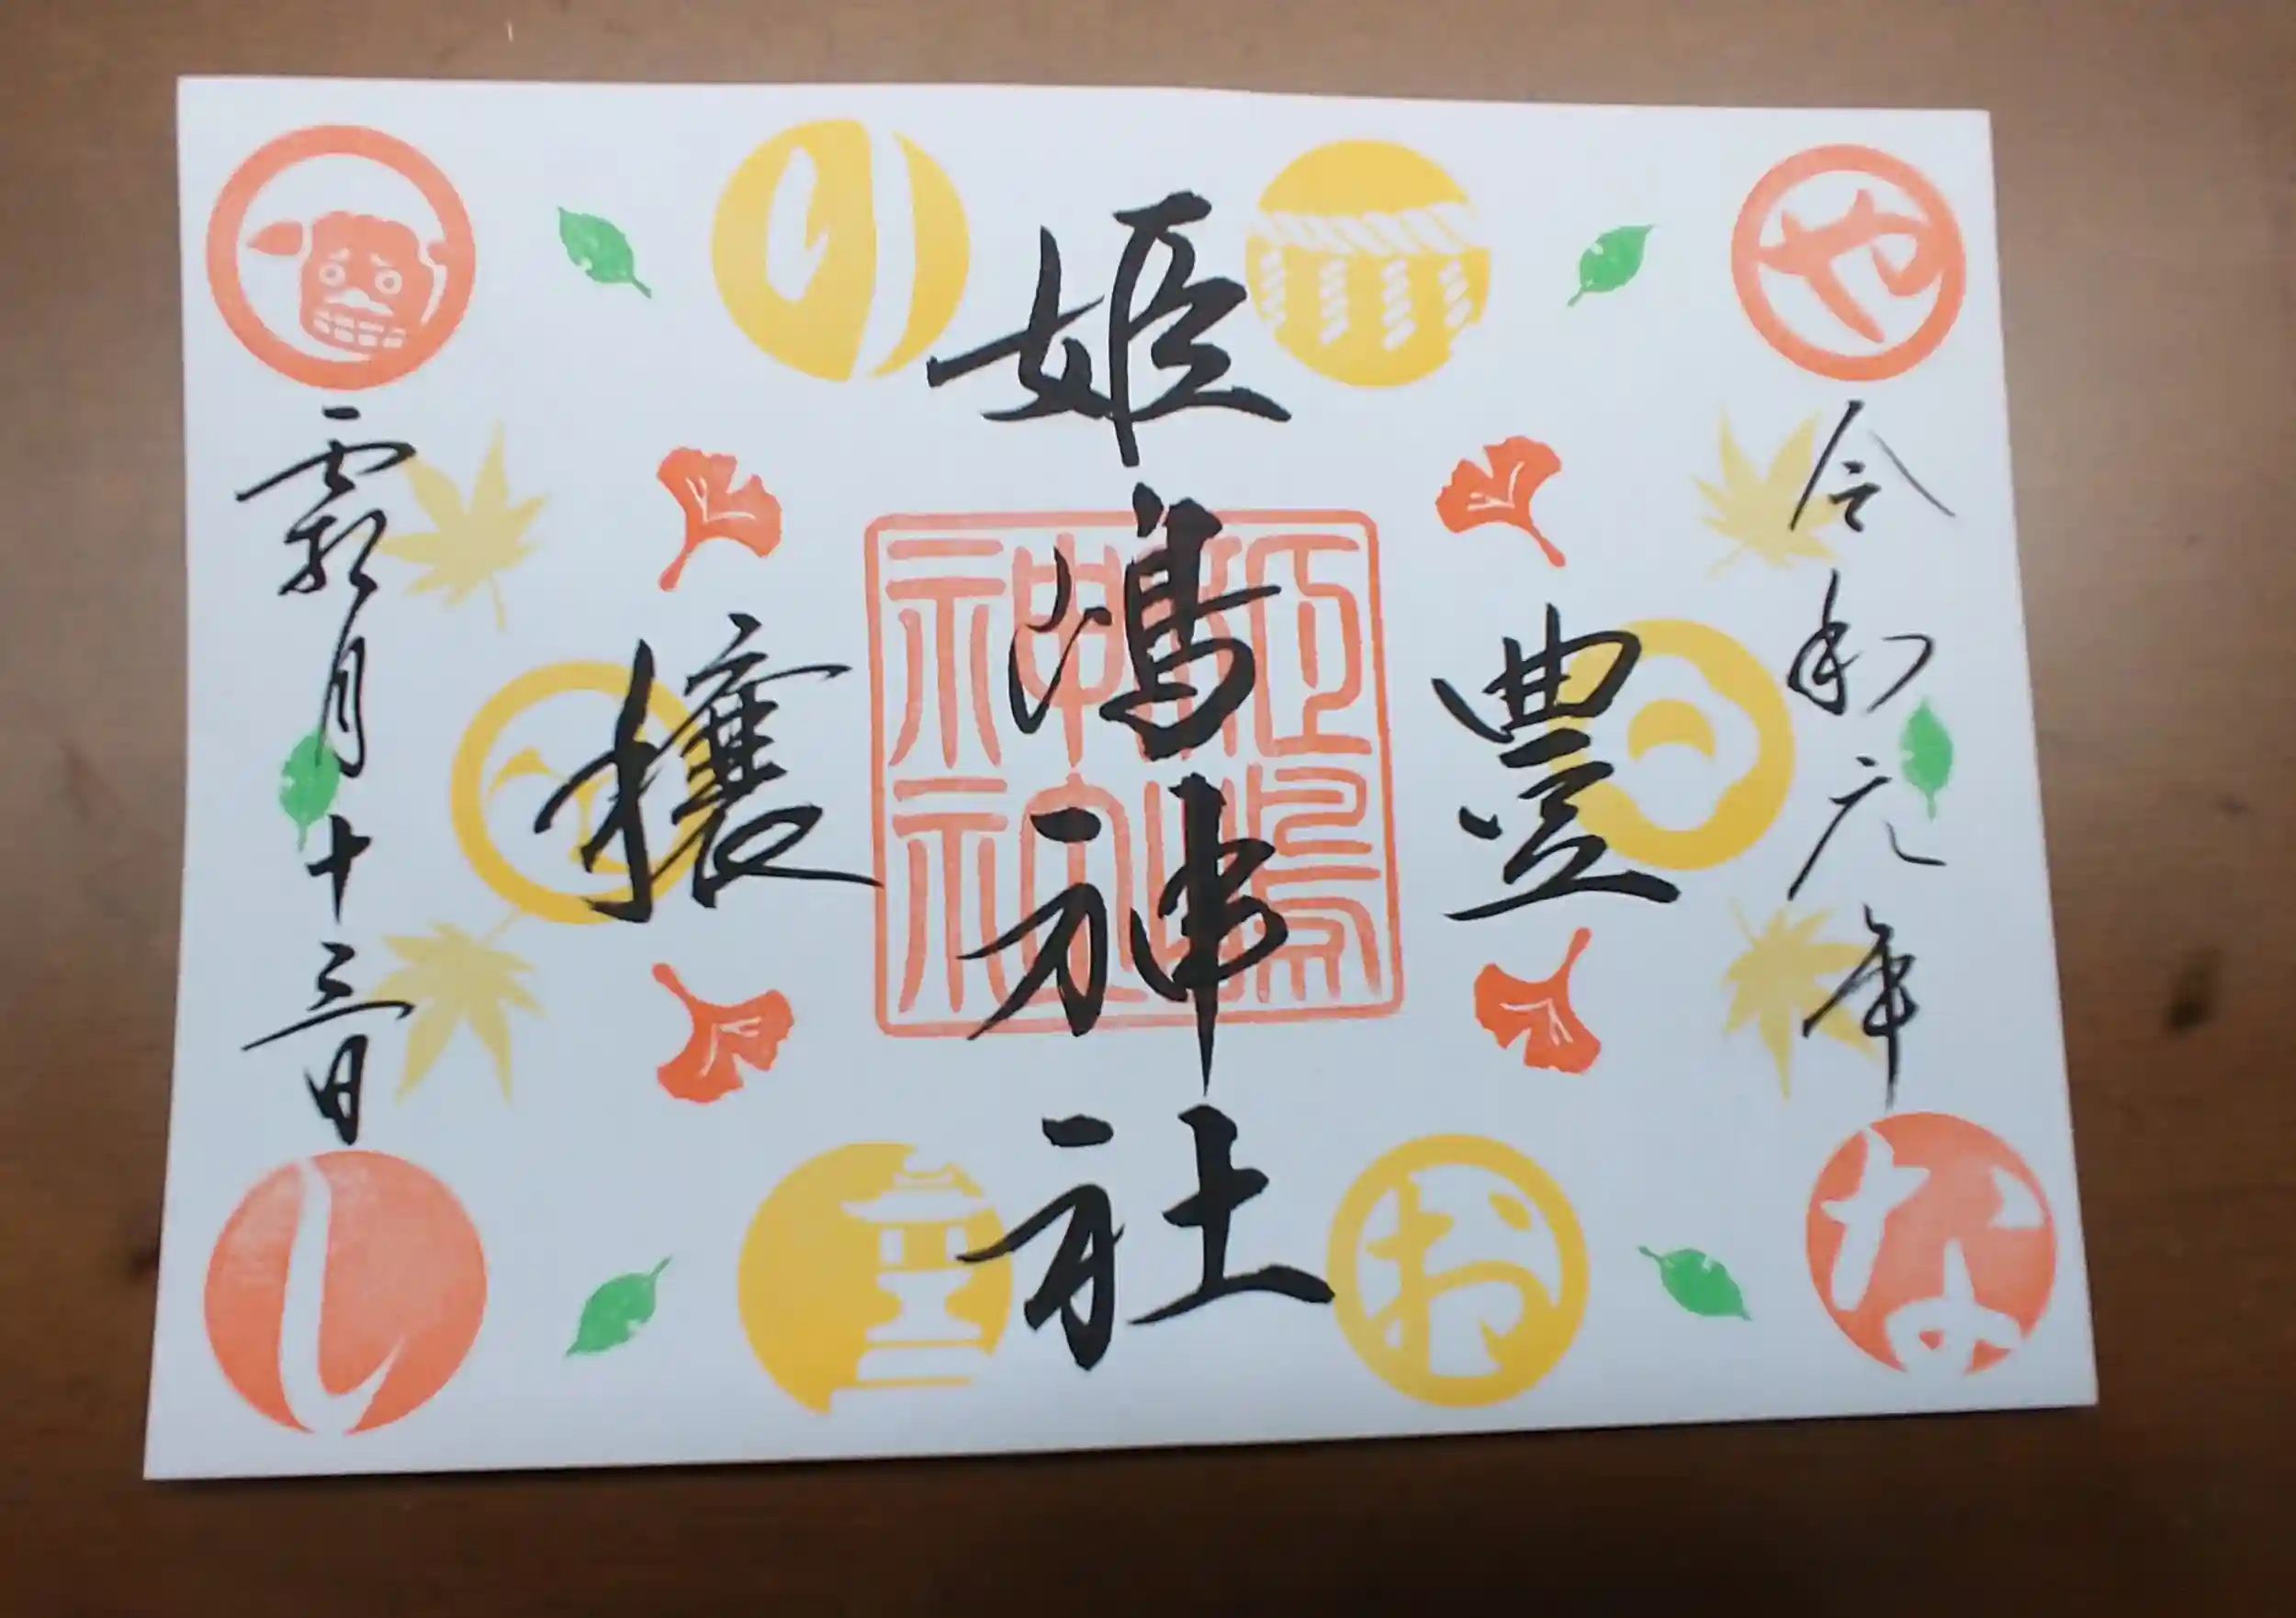 や
令和元年
な
豊
お
姫嶋神社
姫嶋
神社
り
穣
霜月十三日
し